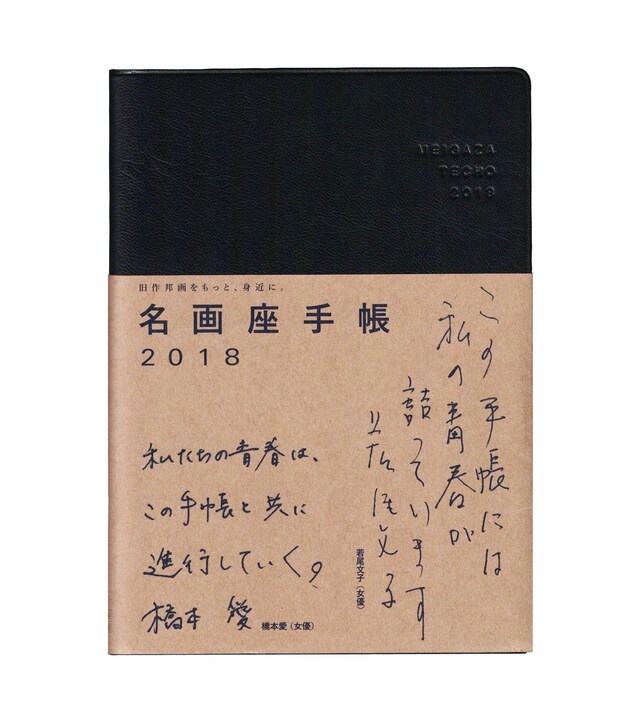 MEIGAZA
TECHO
2018
旧作邦画をもっと、身近に。
名画座手帳
2018
この手帳には
私の青春が
詰っています
若尾文子
若尾文子(女優)
私たちの青春は、
この手帳と共に
進行していく。
橋本 愛
橋本愛(女優)